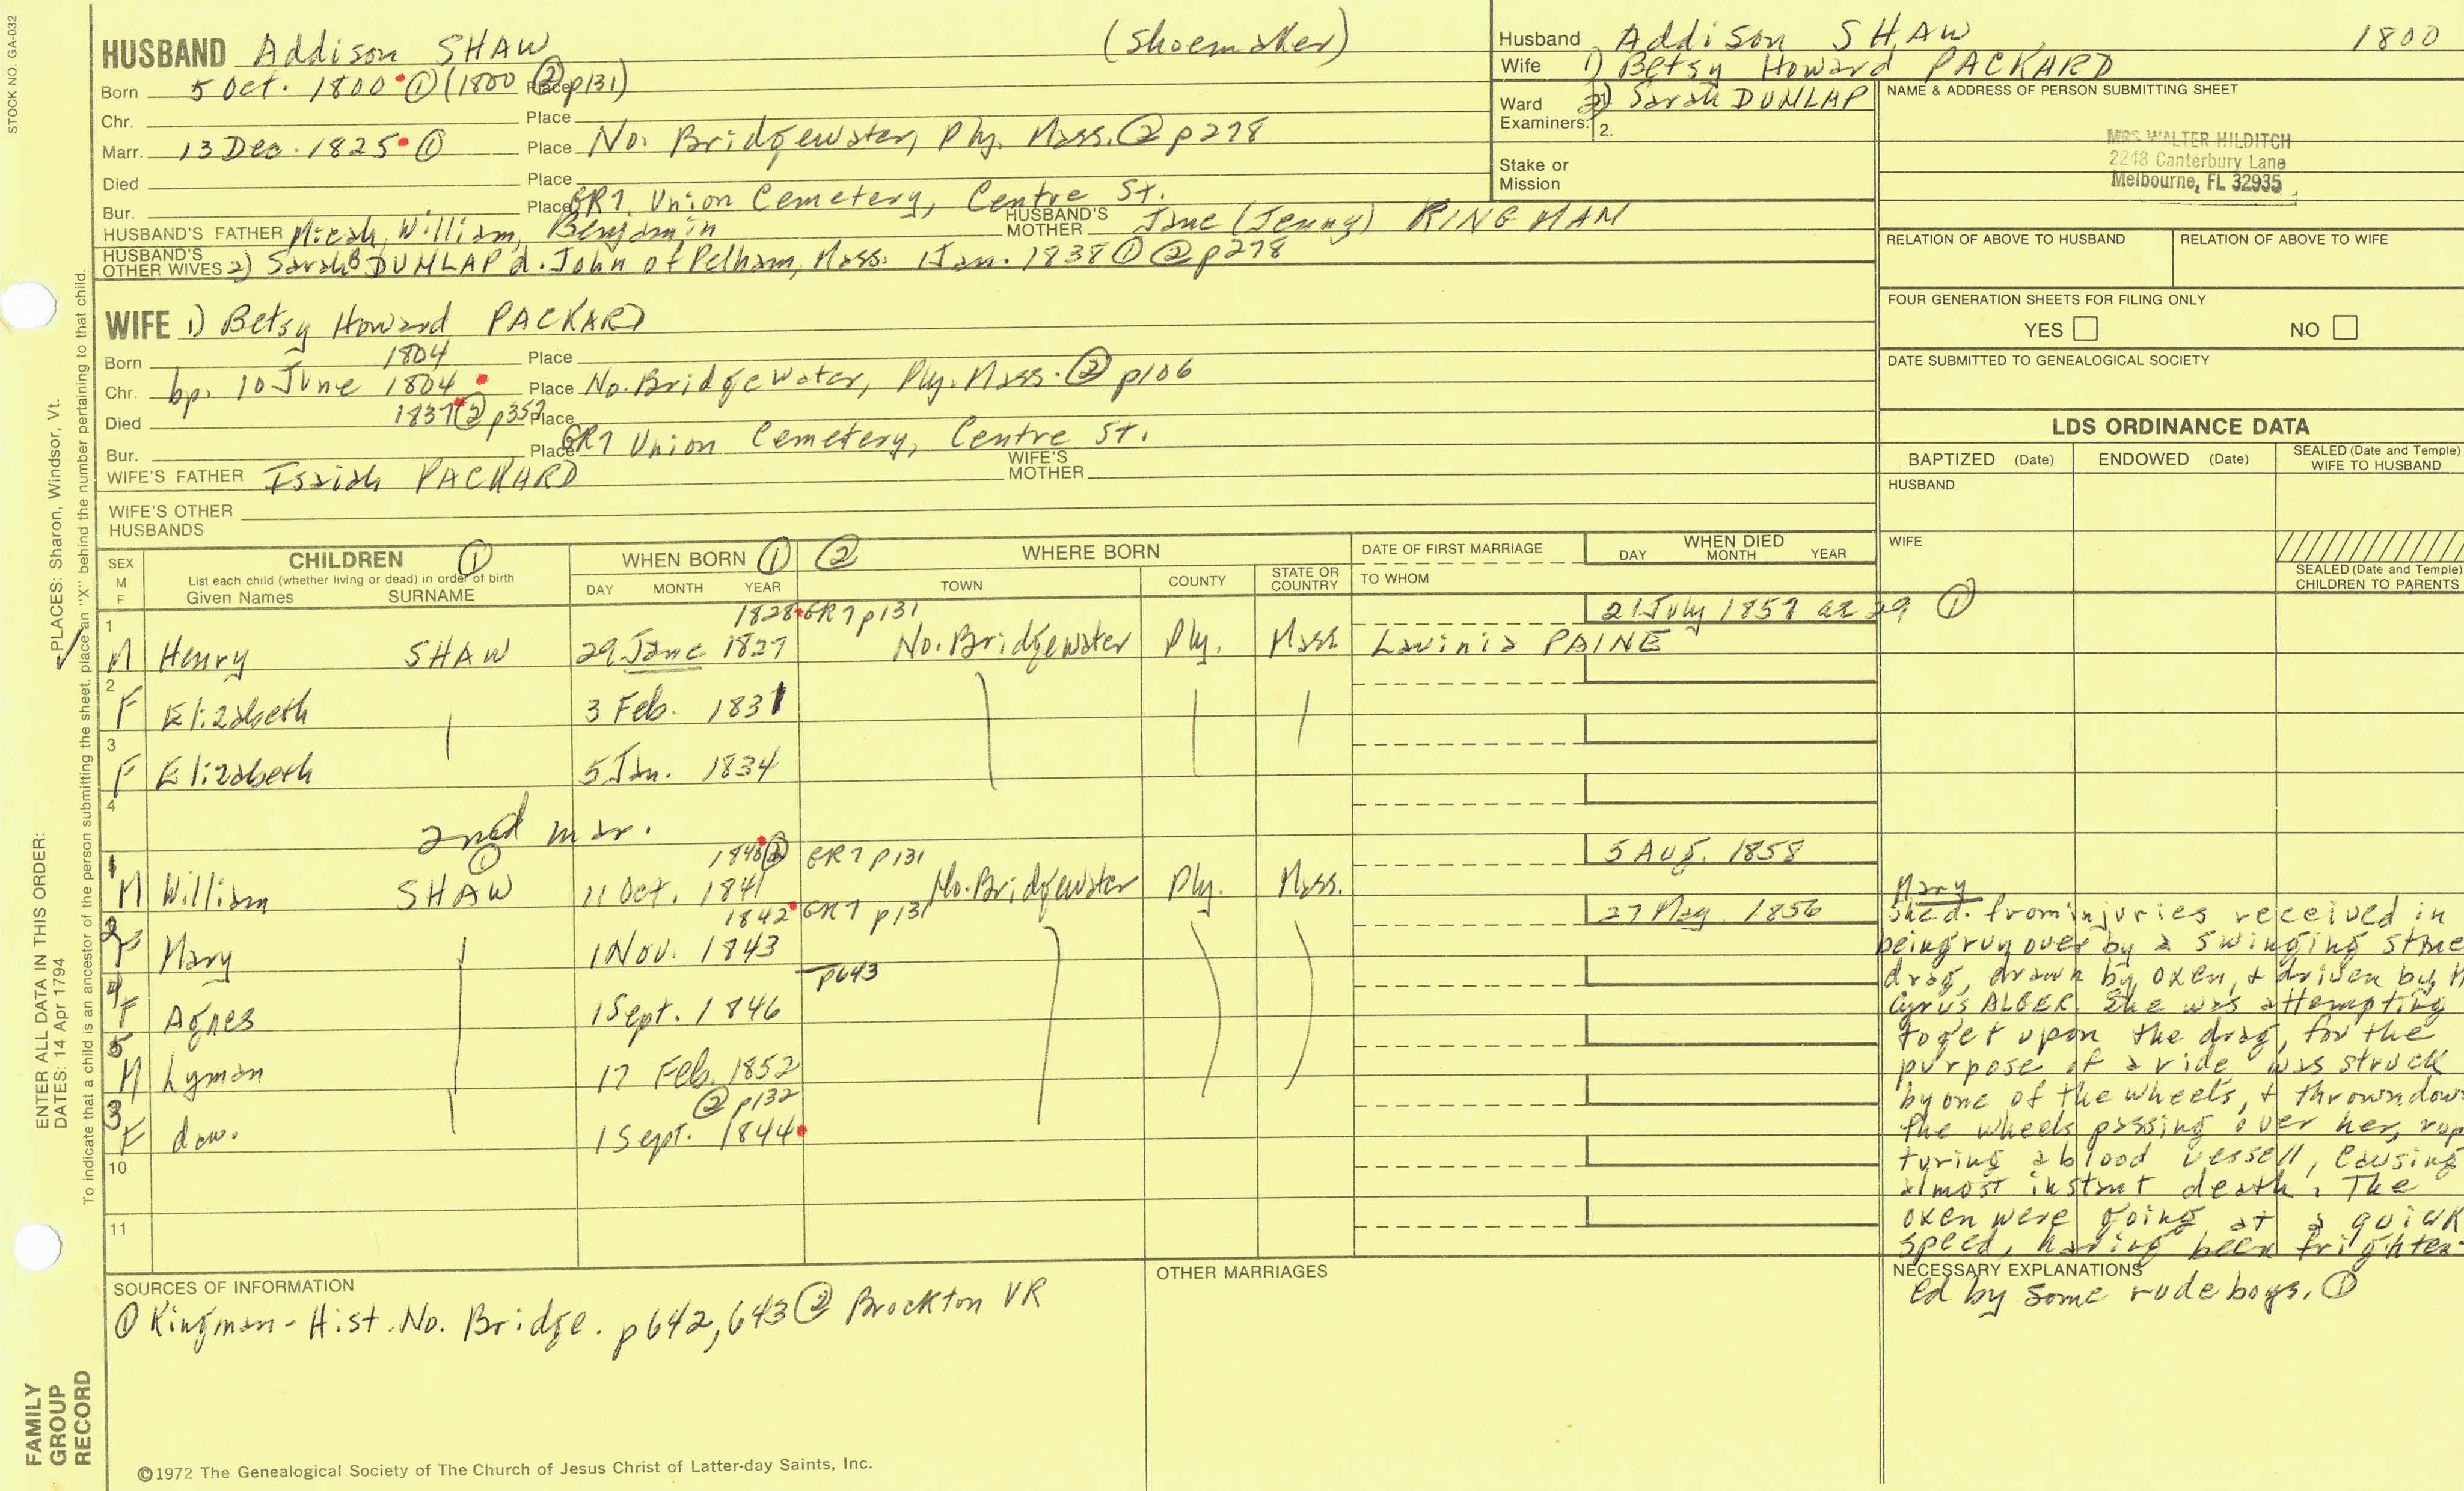 STOCK NO. GA-032
HUSBAND Addison SHAW (Shoemaker)
Born 5 Oct. 1800 ① (1800 ② p131) Place
Chr. Place
Marr. 13 Dec. 1825 ① Place No. Bridgewater, Ply. Mass. ② p278
Died Place
Bur. Place GR7 Union Cemetery, Centre St.
HUSBAND'S FATHER Micah, William, Benjamin HUSBAND'S MOTHER Jane (Jenny) KINGMAN
HUSBAND'S OTHER WIVES 2) Sarah B DUNLAP d. John of Pelham, Mass. 1 Jan. 1838 ① ② p278
WIFE 1) Betsy Howard PACKARD
Born 1804 Place
Chr. bp. 10 June 1804 Place No. Bridgewater, Ply. Mass. ② p106
Died 1837 ② p352 Place
Bur. Place GR7 Union Cemetery, Centre St.
WIFE'S FATHER Isaiah PACKARD WIFE'S MOTHER
WIFE'S OTHER HUSBANDS
Husband Addison SHAW 1800
Wife 1) Betsy Howard PACKARD
Ward Examiners: 2) Sarah DUNLAP
2.
Stake or Mission
NAME & ADDRESS OF PERSON SUBMITTING SHEET
MRS WALTER HILDITCH
2248 Canterbury Lane
Melbourne, FL 32935
RELATION OF ABOVE TO HUSBAND RELATION OF ABOVE TO WIFE
FOUR GENERATION SHEETS FOR FILING ONLY
YES NO
DATE SUBMITTED TO GENEALOGICAL SOCIETY
LDS ORDINANCE DATA
BAPTIZED (Date) ENDOWED (Date) SEALED (Date and Temple) WIFE TO HUSBAND
HUSBAND
WIFE
SEALED (Date and Temple) CHILDREN TO PARENTS
SEX M F CHILDREN ① WHEN BORN ① ② WHERE BORN DATE OF FIRST MARRIAGE WHEN DIED
List each child (whether living or dead) in order of birth
Given Names SURNAME DAY MONTH YEAR TOWN COUNTY STATE OR COUNTRY TO WHOM DAY MONTH YEAR
1 1828 GR7 p131 21 July 1857 ae 29 ①
M Henry SHAW 29 June 1827 No. Bridgewater Ply. Mass Lavinia PAINE
2
F Elizabeth 3 Feb. 1831
3
F Elizabeth 5 Jan. 1834
4
2nd mar.
①
1840 ② GR7 p131 5 Aug. 1858
1 M William SHAW 11 Oct. 1841 No. Bridgewater Ply. Mass.
1842 GR7 p131 27 May 1856
2 F Mary 1 Nov. 1843
p643
4 F Agnes 1 Sept. 1846
5 M Lyman 17 Feb. 1852
② p132
3 F daw. 1 Sept. 1844
10
11
Mary
She d. from injuries received in
being run over by a swinging stone
drag, drawn by oxen, & driven by
Cyrus ALGER. She was attempting
to get upon the drag, for the
purpose of a ride was struck
by one of the wheels, & thrown down
the wheels passing over her, rup
turing a blood vessell, causing
almost instant death. The
oxen were going at a quick
speed, having been frighten-
NECESSARY EXPLANATIONS
ed by some rude boys. ①
SOURCES OF INFORMATION
① Kingman - Hist. No. Bridge. p642, 643 ② Brockton VR
OTHER MARRIAGES
©1972 The Genealogical Society of The Church of Jesus Christ of Latter-day Saints, Inc.
FAMILY GROUP RECORD
ENTER ALL DATA IN THIS ORDER:
DATES: 14 Apr 1794
PLACES: Sharon, Windsor, Vt.
To indicate that a child is an ancestor of the person submitting the sheet, place an "X" behind the number pertaining to that child.